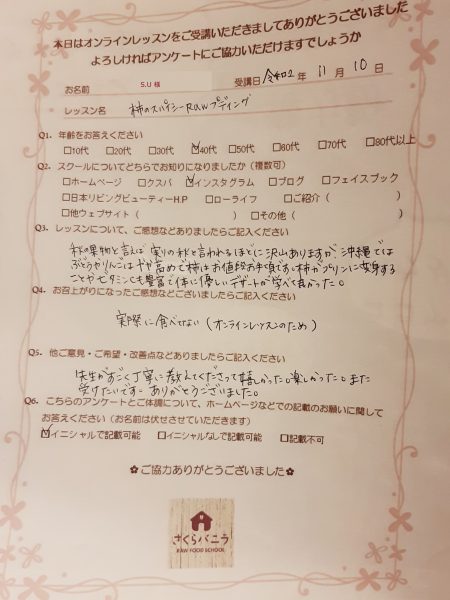 本日はオンラインレッスンをご受講いただきましてありがとうございました
よろしければアンケートにご協力いただけますでしょうか
お名前 S.U 様 受講日 令和2年 11月 10日
レッスン名 柿のスパイシーRawプディング
Q1. 年齢をお答えください
□10代 □20代 □30代 ☑40代 □50代 □60代 □70代 □80代以上
Q2. スクールについてどちらでお知りになりましたか（複数可）
□ホームページ □クスパ ☑インスタグラム □ブログ □フェイスブック
□日本リビングビューティーH.P □ローライフ □ご紹介（ ）
□他ウェブサイト（ ） □その他（ ）
Q3. レッスンについて、ご感想などありましたらご記入ください
秋の果物と言えば 実りの秋と言われるほどに沢山ありますが 沖縄では
ぶどうやりんごはやや高めで柿はお値段お手頃です。柿がプリンに変身する
ことやビタミンCも豊富で体に優しいデザートが学べて良かった。
Q4. お召上がりになったご感想などございましたらご記入ください
実際に食べてない(オンラインレッスンのため)
Q5. 他ご意見・ご希望・改善点などありましたらご記入ください
先生がすごく丁寧に教えてくださって嬉しかった。楽しかった。また
受けたいです。ありがとうございました。
Q6. こちらのアンケートとご体調について、ホームページなどでの記載のお願いに関して
お答えください（お名前は伏せさせていただきます）
☑イニシャルで記載可能 □イニシャルなしで記載可能 □記載不可
✿ご協力ありがとうございました✿
さくらばこう
RAW FOOD SCHOOL